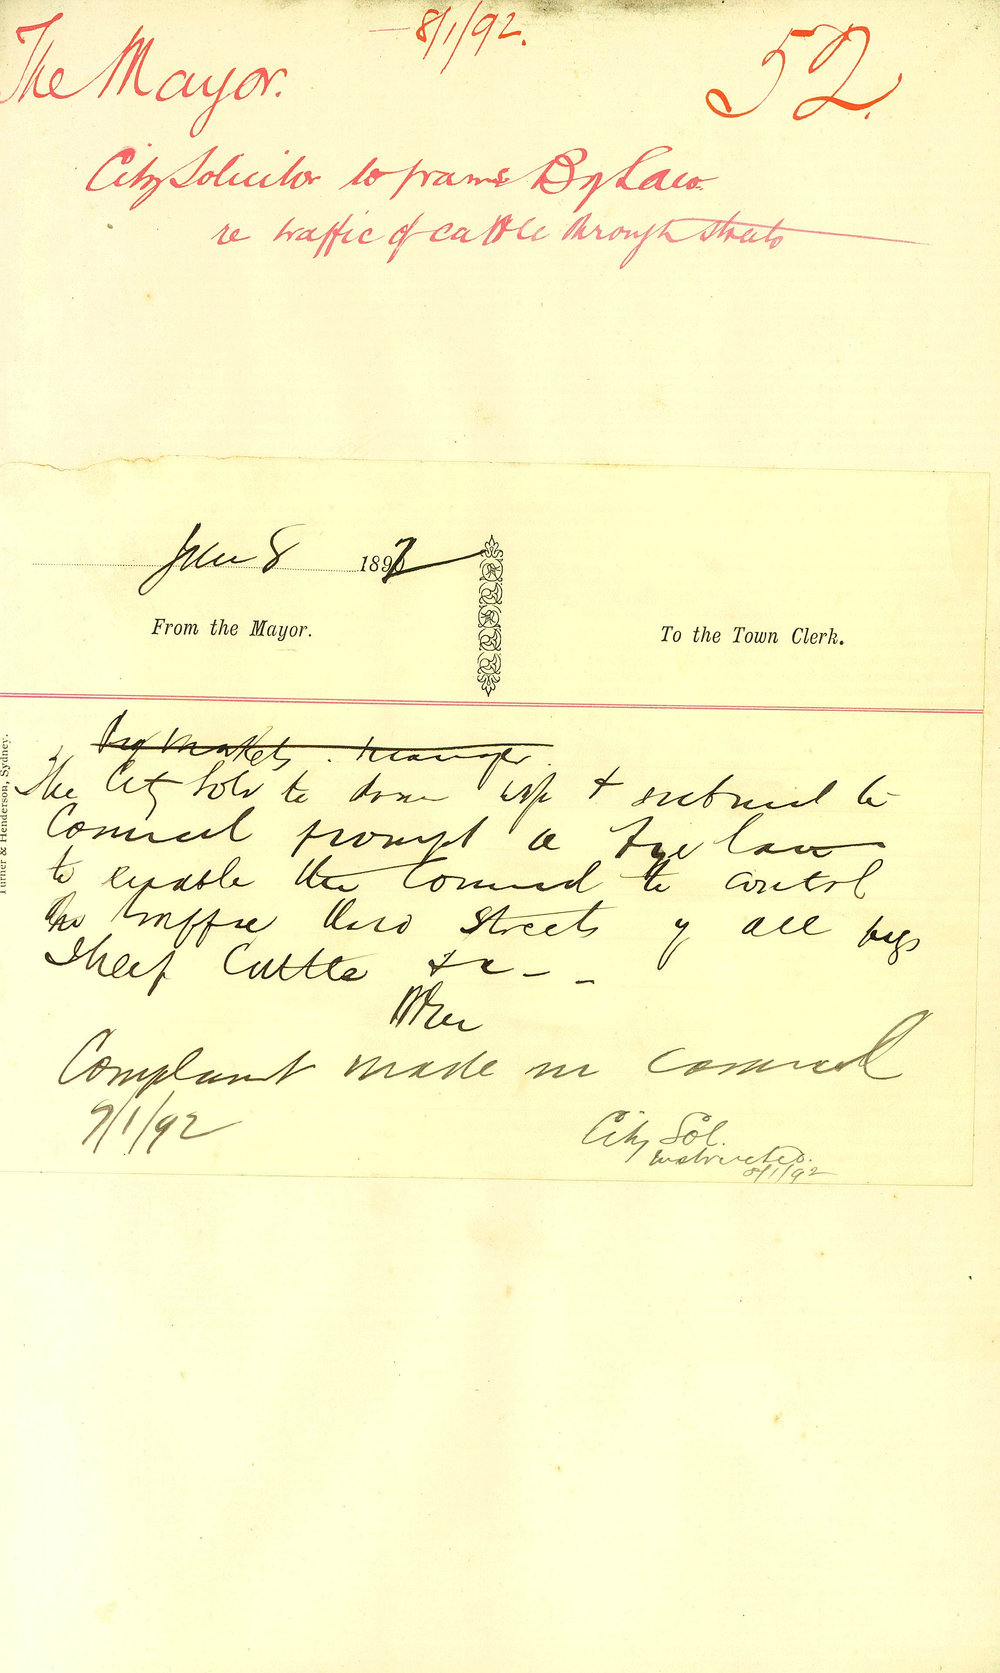 8/1/92.
52.
The Mayor.
City Solicitor to frame By Law
re traffic of cattle through streets
Jan 8 1892
From the Mayor.
To the Town Clerk.
Turner & Henderson, Sydney.
Markets Manager
The City Solr to draw up & submit to
Council prompt a bye law
to enable the Council to control
the traffic thro streets of all pigs
Sheep Cattle &c -
Complaint made in council
9/1/92
City Sol.
instructed.
8/1/92